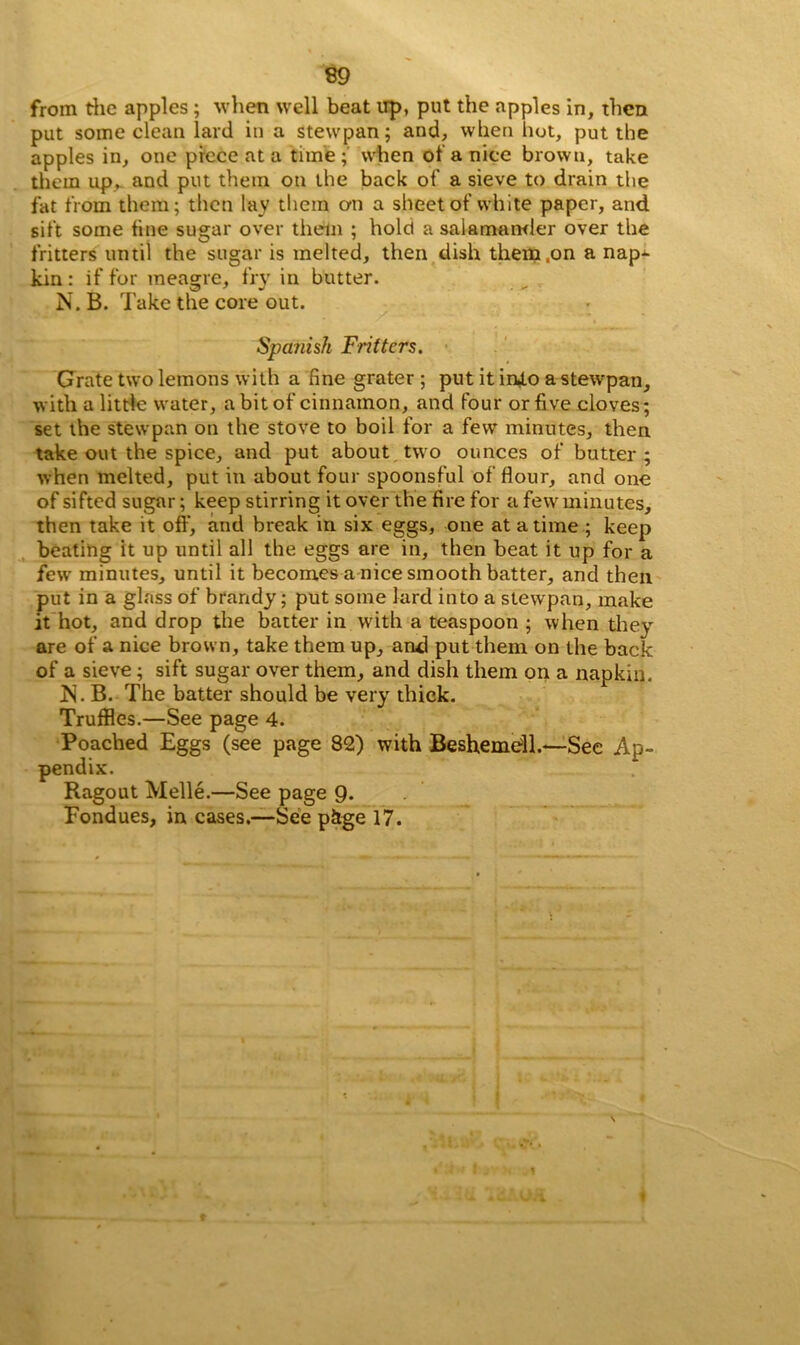 89
from the apples; when well beat up, put the apples in, then
put some clean lard in a stewpan; and, when hot, put the
apples in, one piece at a time; when of a nice brown, take
them up, and put them on the back of a sieve to drain the
fat from them; then lay them on a sheet of white paper, and
sift some fine sugar over them; hold a salamander over the
fritters until the sugar is melted, then dish them on a nap-
kin: if for meagre, fry in butter.
N. B. Take the core out.
Spanish Fritters.
Grate two lemons with a fine grater; put it into a stewpan,
with a little water, a bit of cinnamon, and four or five cloves;
set the stewpan on the stove to boil for a few minutes, then
take out the spice, and put about two ounces of butter;
when melted, put in about four spoonsful of flour, and one
of sifted sugar; keep stirring it over the fire for a few minutes,
then take it off, and break in six eggs, one at a time; keep
beating it up until all the eggs are in, then beat it up for a
few minutes, until it becomes a nice smooth batter, and then
put in a glass of brandy; put some lard into a stewpan, make
it hot, and drop the batter in with a teaspoon; when they
are of a nice brown, take them up, and put them on the back
of a sieve; sift sugar over them, and dish them on a napkin.
N. B. The batter should be very thick.
Truffles.—See page 4.
Poached Eggs (see page 82) with Beshemell.—See Ap-
pendix.
Ragout Melle.—See page 9.
Fondues, in cases.—See page 17.